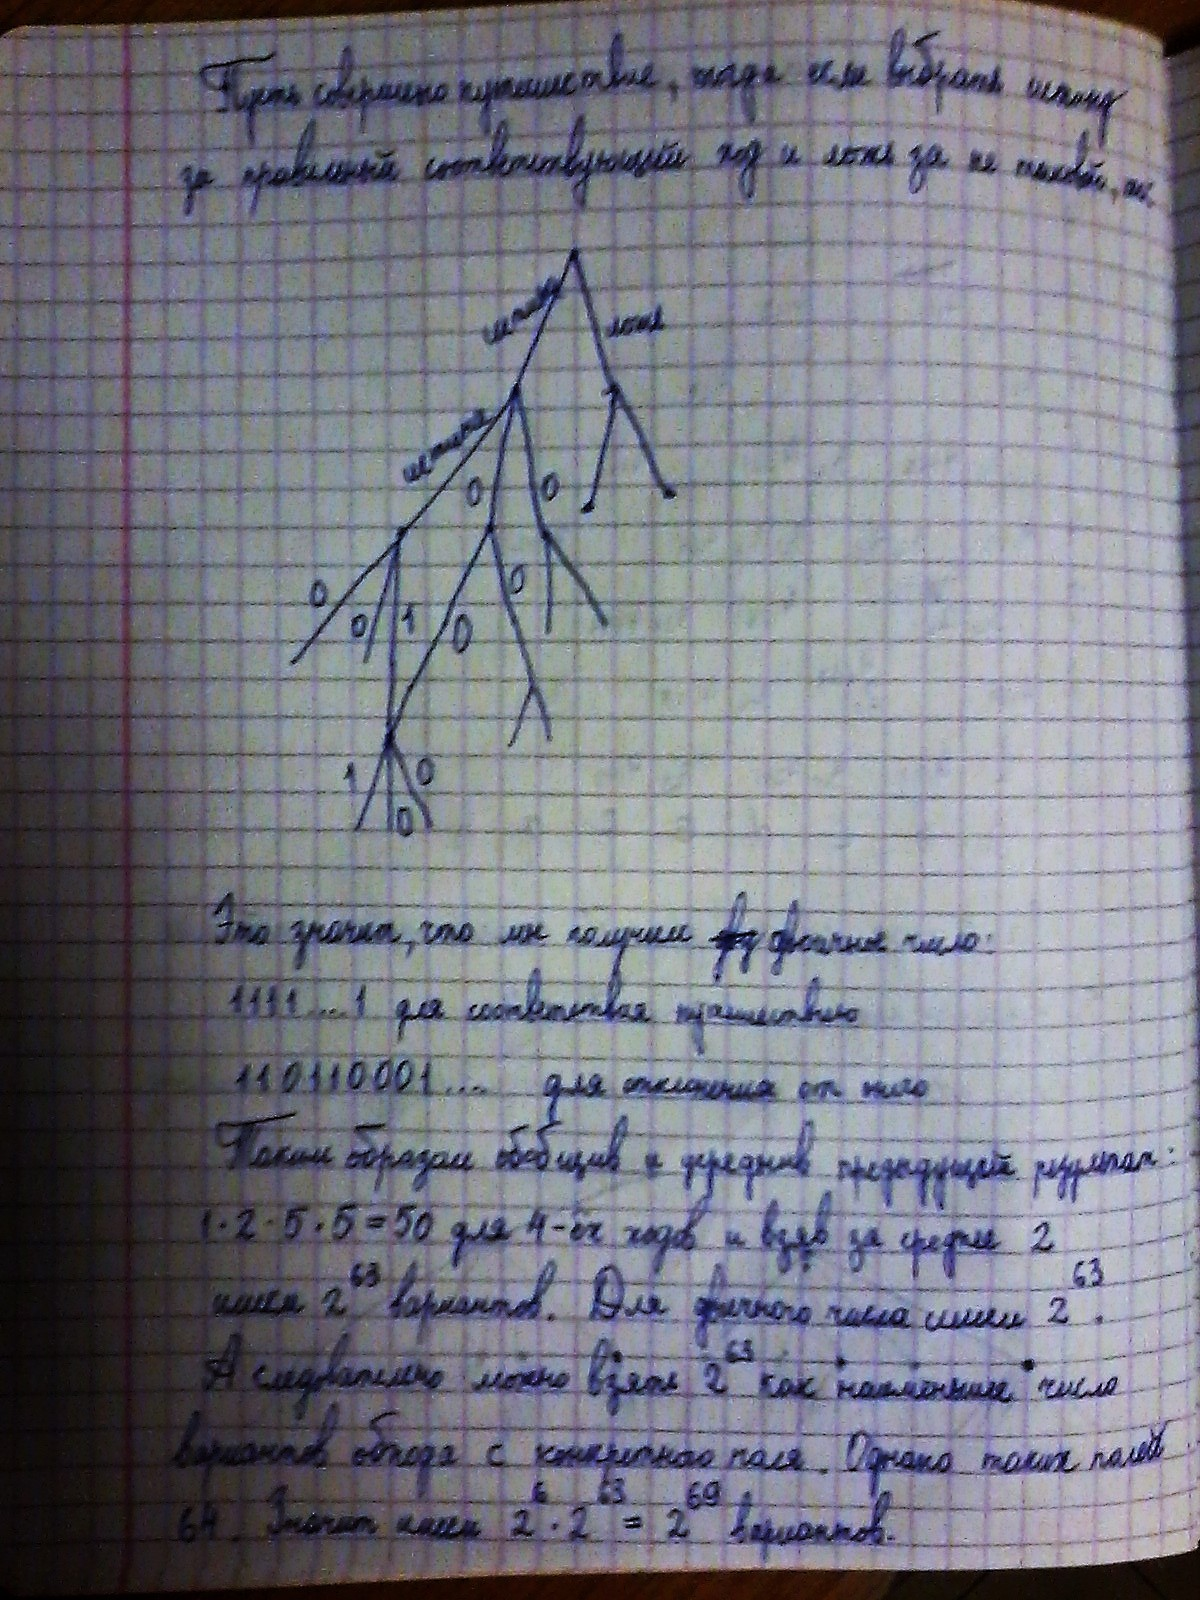 Пусть совершено путешествие, тогда если выбрать истину
за правильный соответствующий ход и ложь за не таковой, то:
истина
ложь
истина
0 0
0 0 1 0 0
1 0 0
Это значит, что мы получим двоичное число:
1111...1 для соответствия путешествию
110110001.... для отклонения от него
Таким образом обобщив и усреднив предыдущий результат:
1·2·5·5=50 для 4-ёх ходов и взяв за среднее 2
имеем 2^63 вариантов. Для двоичного числа имеем 2^63.
А следовательно можно взять 2^63 как наименьшее число
вариантов обхода с конкретного поля. Однако таких полей
64. Значит имеем 2^6·2^63=2^69 вариантов.